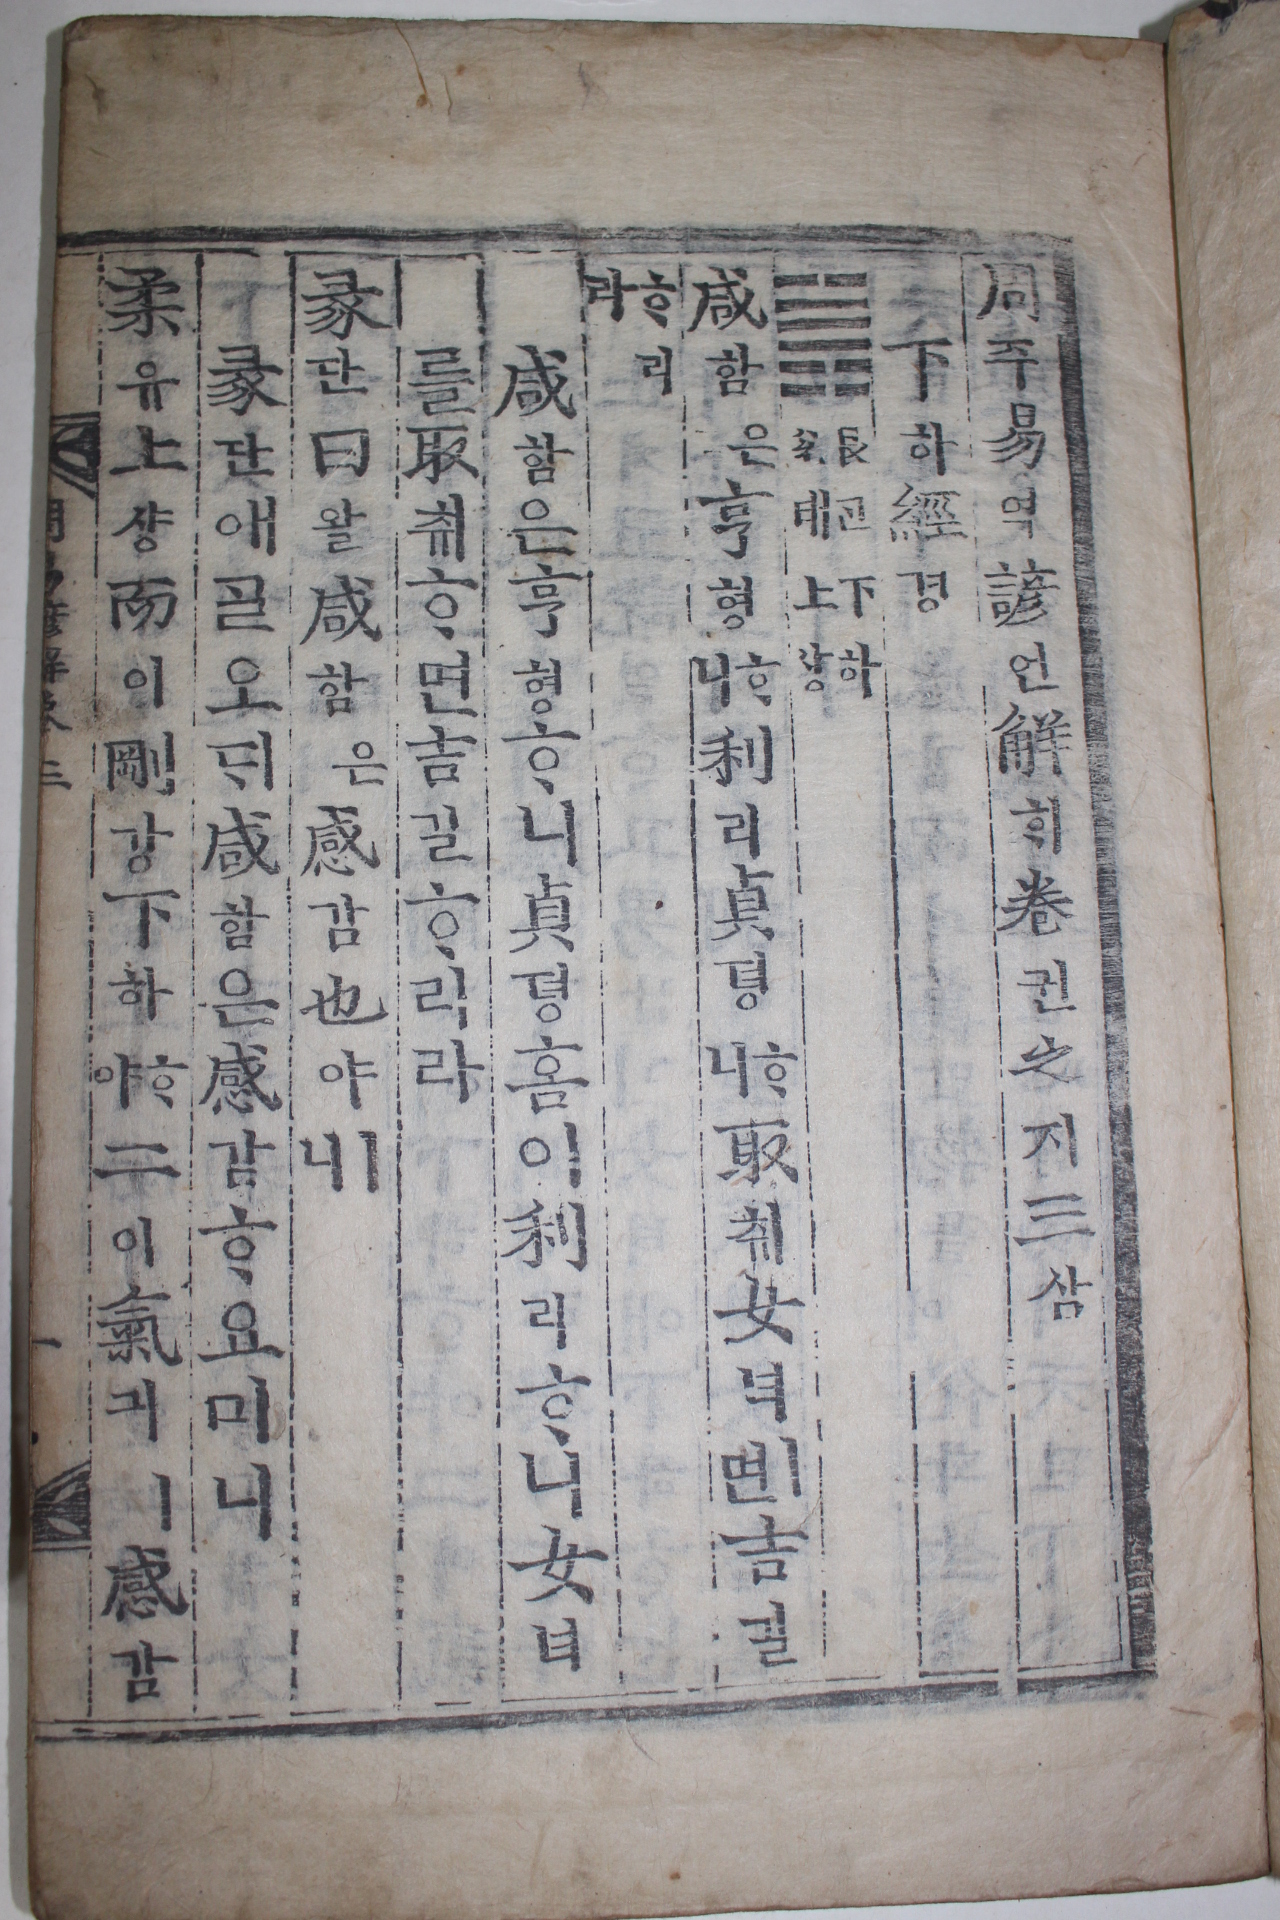 周쥬易역諺언解ᄒᆡ卷권之지三삼
下하經경
䷞ 艮간下하 兌태上샹
咸함은亨형ᄒᆞ니利리貞뎡ᄒᆞ니取취女녀ㅣ면吉길
ᄒᆞ리라
咸함은亨형ᄒᆞ니貞뎡홈이利리ᄒᆞ니女녀
를取취ᄒᆞ면吉길ᄒᆞ리라
彖단曰왈咸함은感감也야ㅣ니
彖단애ᄀᆞᆯ오ᄃᆡ咸함은感감ᄒᆞ요미니
柔유上샹而이剛강下하ᄒᆞ야二이氣긔ㅣ感감
周易諺解卷三 一